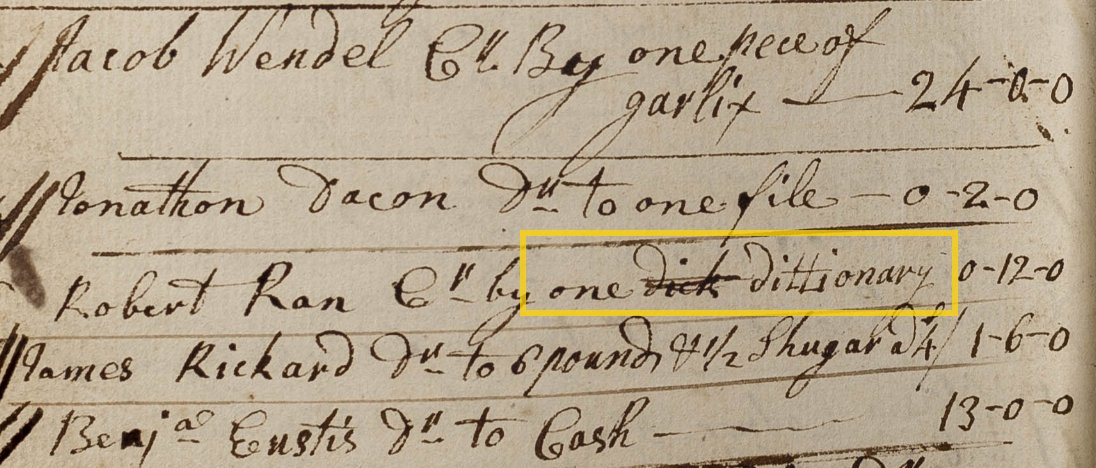 Jacob Wendel Cr. By one pece of
garlix — 24-0-0
Jonathon Dacon Dr. to one file — 0-2-0
Robert Ran Cr. by one dick dittionary 0-12-0
James Rickard Dr. to 6 pound & 1/2 Shugar a 4/ 1-6-0
Benja Eustis Dr. to Cash — 13-0-0